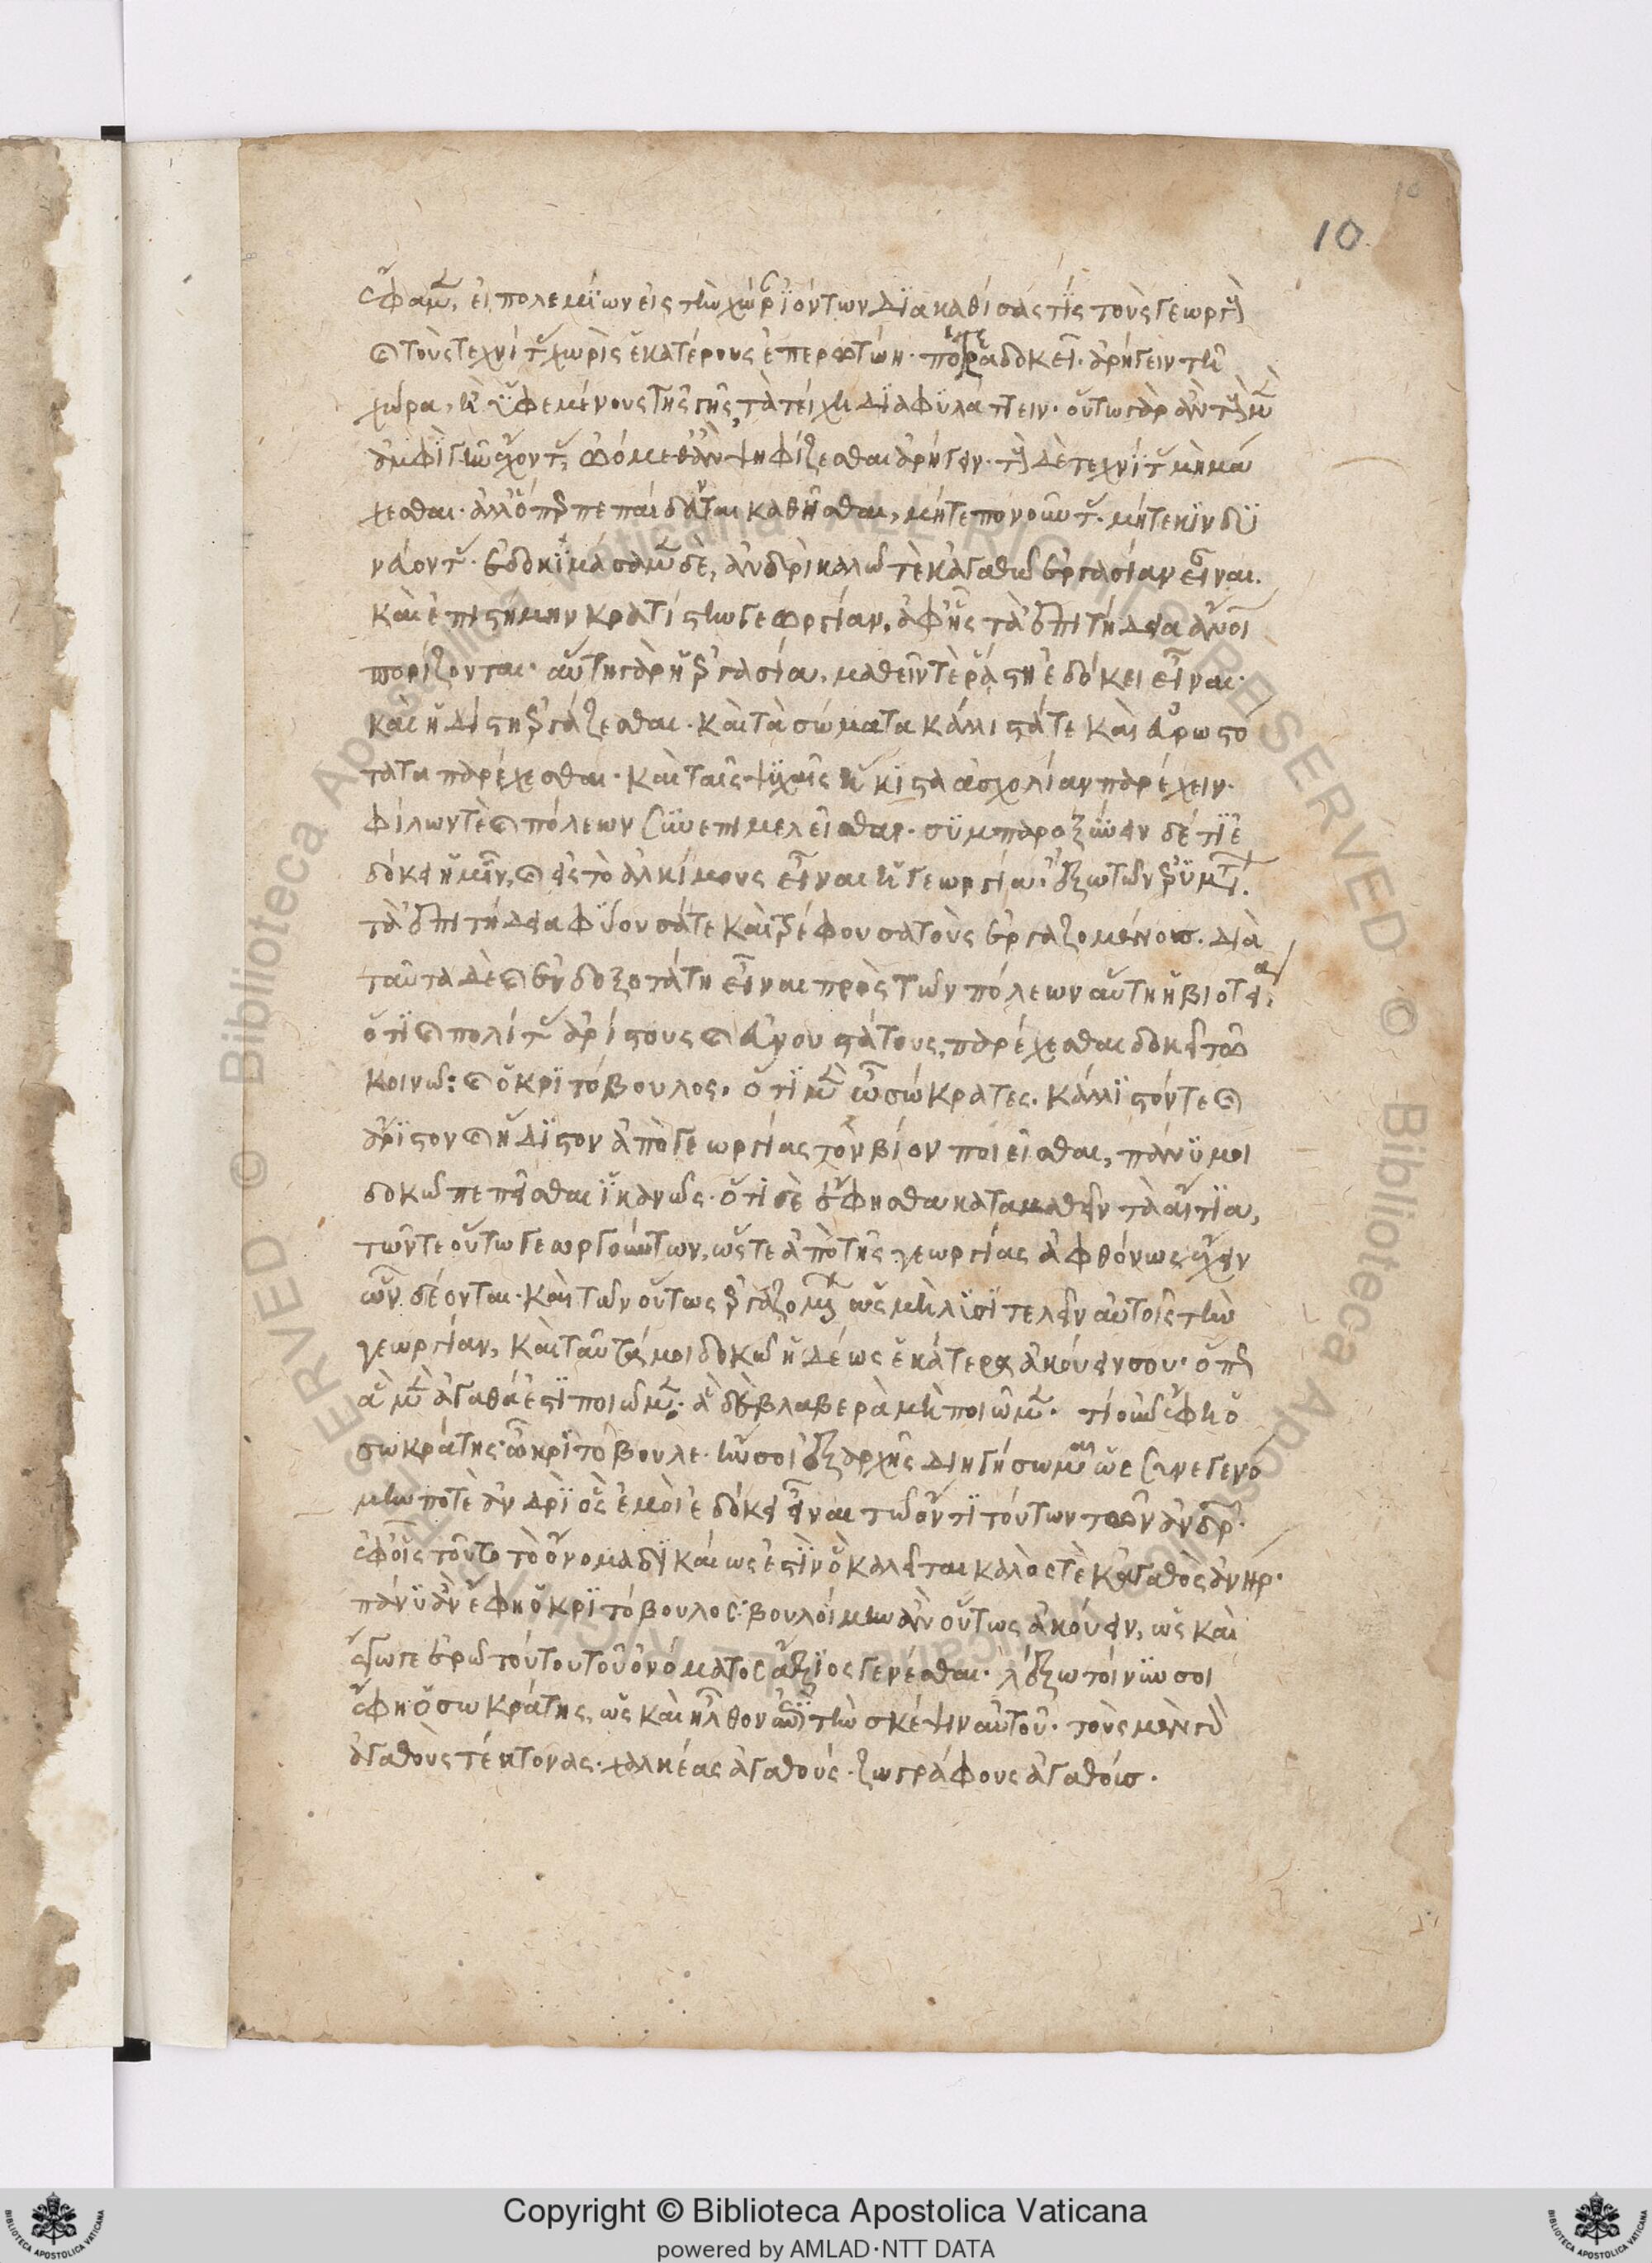 10
ἔφαμεν, εἰ πολεμίων εἰς τὴν χώραν ἰόντων διακαθίσας τίς τοὺς γεωργοὺς
καὶ τοὺς τεχνίτας χωρὶς ἑκατέρους ἐπερωτώη· πότερα δοκεῖ· ἀρήγειν τῇ
χώρα, ἢ ὑφεμένους τῆς γῆς, τὰ τείχη διαφυλάττειν· οὕτως γὰρ ἂν τοὺς μὲν
ἀμφὶ γῆν ἔχοντας, ᾠόμεθ' ἂν ψηφίζεσθαι ἀρήγειν· τοὺς δὲ τεχνίτας μὴ μά
χεσθαι· ἀλλ' ὅπερ πεπαίδευνται καθῆσθαι, μήτε πονοῦντας· μήτε κινδυ
νεύοντας· ἐδοκιμάσαμεν δὲ, ἀνδρὶ καλῶ τὲ κἀγαθῶ ἐργασίαν εἶναι.
καὶ ἐπιστήμην κρατίστην γεωργίαν, ἀφ' ἧς τὰ ἐπιτήδεια ἄνθρωποι
πορίζονται· αὕτη γὰρ ἡ ἐργασία, μαθεῖν τὲ ῥάστη ἐδόκει εἶναι·
καὶ ἡδίστη ἐργάζεσθαι· καὶ τὰ σώματα κάλλιστά τε καὶ εὐρωστό
τατα παρέχεσθαι· καὶ ταῖς ψυχαῖς ἥκιστα ἀσχολίαν παρέχειν·
φίλων τὲ καὶ πόλεων συνεπιμελεῖσθαι· συμπαροξύνειν δέ τι ἐ
δόκει ἡμῖν, καὶ εἰς τὸ ἀλκίμους εἶναι ἡ γεωργία· ἔξω τῶν ἐρυμάτων
τὰ ἐπιτήδεια φύουσά τε καὶ τρέφουσα τοὺς ἐργαζομένους. διὰ
ταῦτα δὲ καὶ ἐνδοξοτάτη εἶναι πρὸς τῶν πόλεων αὕτη ἡ βιοτεία,
ὅτι καὶ πολίτας ἀρίστους καὶ εὐνουστάτους, παρέχεσθαι δοκεῖ τῶ
κοινῶ: καὶ ὁ κριτόβουλος. ὅτι μὲν ὦ σώκρατες. κάλλιστόν τε καὶ
ἄριστον καὶ ἥδιστον ἀπὸ γεωργίας τὸν βίον ποιεῖσθαι, πάνυ μοι
δοκῶ πεπεῖσθαι ἱκανῶς· ὅτι δὲ ἔφησθα καταμαθεῖν τὰ αἴτια,
τῶν τε οὕτω γεωργούντων, ὥστε ἀπὸ τῆς γεωργίας ἀφθόνως ἔχειν
ὧν δέονται· καὶ τῶν οὕτως ἐργαζομένων ὡς μὴ λυσιτελεῖν αὐτοῖς τὴν
γεωργίαν, καὶ ταῦτά μοι δοκῶ ἡδέως ἑκάτερα ἀκούειν σου· ὅπως
ἃ μὲν ἀγαθά ἐστι ποιῶμεν· ἃ δὲ βλαβερὰ μὴ ποιῶμεν· τί οὖν ἔφη ὁ
σωκράτης· ὦ κριτόβουλε· ἤν σοι ἐξ ἀρχῆς διηγήσωμαι ὡς συνεγενό
μην ποτὲ ἀνδρὶ ὃς ἐμοὶ ἐδόκει εἶναι τῶ ὄντι τούτων τῶν ἀνδρῶν·
ἐφ' οἷς τοῦτο τὸ ὄνομα δικαίως ἐστὶν ὃ καλεῖται καλός τὲ κἀγαθὸς ἀνήρ·
πάνυ ἂν ἔφη ὁ κριτόβουλος· βουλοίμην ἂν οὕτως ἀκούειν, ὡς καὶ
ἔγωγε ἐρῶ τούτου τοῦ ὀνόματος ἄξιος γενέσθαι· λέξω τοίνυν σοι
ἔφη ὁ σωκράτης, ὡς καὶ ἦλθον ἐπὶ τὴν σκέψιν αὐτοῦ· τοὺς μὲν γὰρ
ἀγαθοὺς τέκτονας· χαλκέας ἀγαθούς· ζωγράφους ἀγαθούς·
Copyright © Biblioteca Apostolica Vaticana
powered by AMLAD·NTT DATA